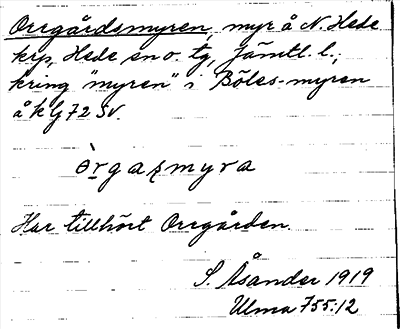 Orrgårdsmyren, myr å N. Hede
krp, Hede sn o. tg, Jämtl. l.;
kring "myren" i Böles-myren
å kbl 72 SV.
òrgaʂmyra
Har tillhört Orrgården.
S. Åsander 1919
Ulma 755:12